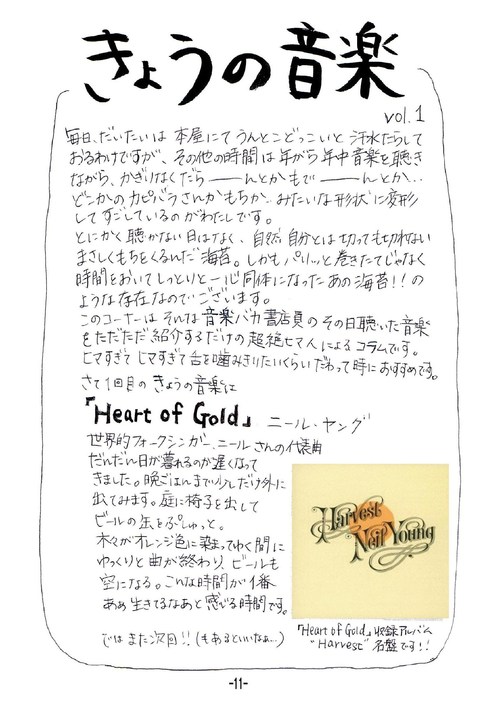 きょうの音楽
vol.1
毎日、だいたいは 本屋にて うんとこどっこいと 汗水たらして
おるわけですが、その他の時間は年がら年中音楽を聴き
ながら、かぎりなくだら――んとかもで――んとか‥
どこかのカピバラさんかもちか‥みたいな形状に変形
してすごしているのがわたしです。
とにかく聴かない日はなく、自然、自分とは切っても切れない
まさしくもちをくるんだ海苔。しかもパリッと巻きたてじゃなく
時間をおいてしっとりと一心同体になったあの海苔!!の
ような存在なのでございます。
このコーナーは そんな 音楽バカ書店員の その日聴いた音楽
をただただ紹介するだけの超絶ヒマ人によるコラムです。
ヒマすぎてヒマすぎて舌を噛みきりたいくらいだわって時におすすめです。
さて1回目の きょうの音楽は
『Heart of Gold』 ニール・ヤング
世界的フォークシンガー、ニールさんの代表曲
だんだん日が暮れるのが遅くなって
きました。晩ごはんまで少しだけ外に
出てみます。庭に椅子を出して
ビールの缶をぷしゅっと。
木々がオレンジ色に染まってゆく間に
ゆっくりと曲が終わり、ビールも
空になる。こんな時間が1番
あぁ生きてるなあと感じる時間です。
では また次回!!(もあるといいなぁ…)
Harvest
Neil Young
『Heart of Gold』収録アルバム
"Harvest" 名盤です!!
-11-